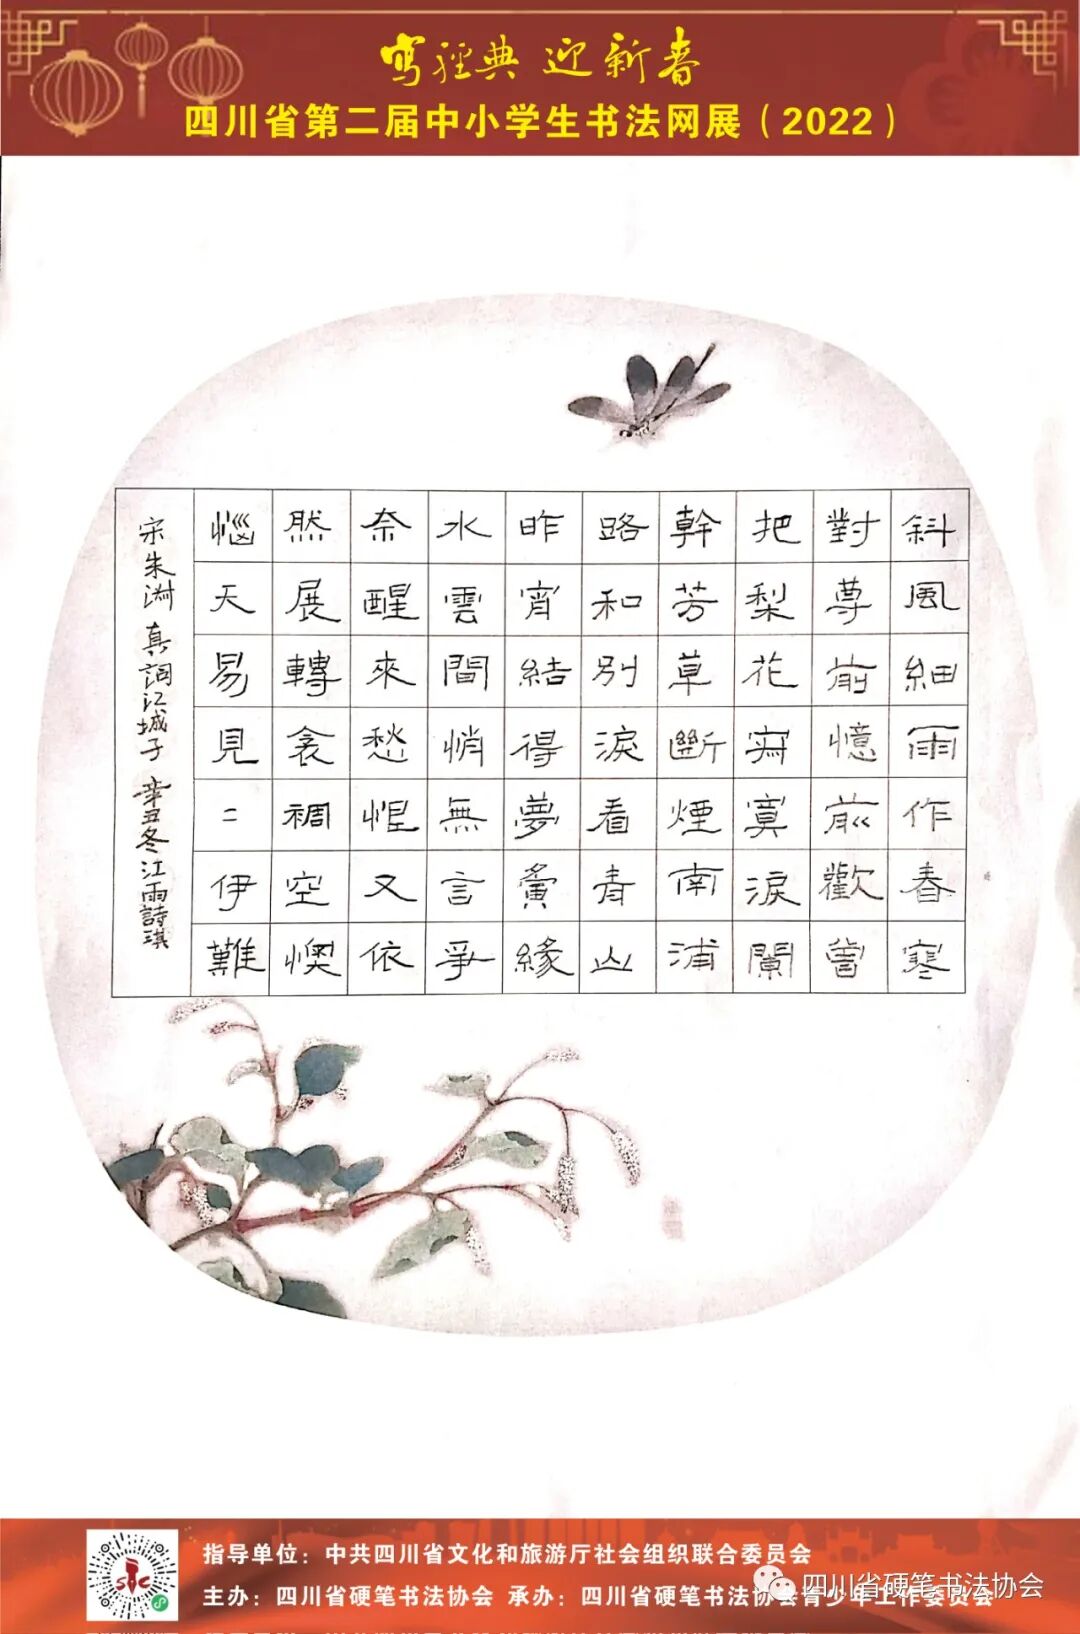 写经典 迎新春
四川省第二届中小学生书法网展（2022）
斜風細雨作春寒
對尊前憶前歡曾
把梨花寂寞淚闌
幹芳草斷煙南浦
路和別淚看青山
昨宵結得夢夤緣
水雲間悄無言爭
奈醒來愁恨又依
然展轉衾裯空懊
惱天易見二伊難
宋朱淑真詞江城子 辛丑冬江雨詩琪
指导单位：中共四川省文化和旅游厅社会组织联合委员会
主办：四川省硬笔书法协会 承办：四川省硬笔书法协会青少年工作委员会
四川省硬笔书法协会